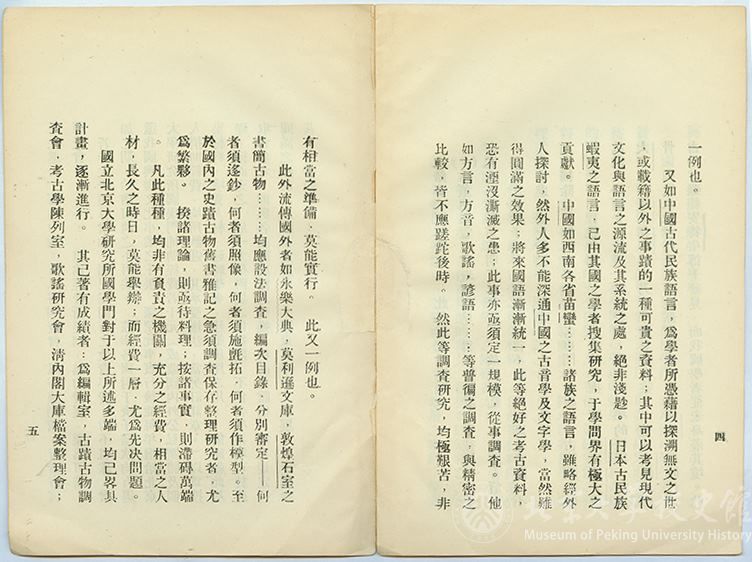 一例也。
又如中國古代民族語言，爲學者所憑藉以探溯無文之世
，或載籍以外之事蹟的一種可貴之資料；其中可以考見現代
文化與語言之源流及其系統之處，絕非淺尠。　日本古民族
蝦夷之語言，已由其國之學者搜集研究，于學問界有極大之
貢獻。　中國如西南各省苗蠻……諸族之語言，雖略經外
人探討，然外人多不能深通中國之古音學及文字學，當然難
得圓滿之效果；將來國語漸漸統一，此等絕好之考古資料，
恐有湮沒漸滅之患；此事亦亟須定一規模，從事調查。　他
如方言，方音，歌謠，諺語……等普徧之調查，與精密之
比較，皆不應蹉跎後時。　然此等調查研究，均極艱苦，非
四
有相當之準備，莫能實行。　此又一例也。
此外流傳國外者如永樂大典，莫利遜文庫，敦煌石室之
書簡古物……均應設法調查，編次目錄，分別審定——何
者須迻鈔，何者須照像，何者須施氈拓，何者須作模型。至
於國內之史蹟古物舊書雅記之急須調查保存整理研究者，尤
爲繁夥。　揆諸理論，則亟待料理；按諸事實，則滯礙萬端
。　凡此種種，均非有負責之機關，充分之經費，相當之人
材，長久之時日，莫能舉辦；而經費一層，尤爲先决問題。
國立北京大學研究所國學門對于以上所述多端，均已畧具
計畫，逐漸進行。　其已著有成績者：爲編輯室，古蹟古物調
查會，考古學陳列室，歌謠研究會，清內閣大庫檔案整理會；
五
北京大学校史馆
Museum of Peking University History